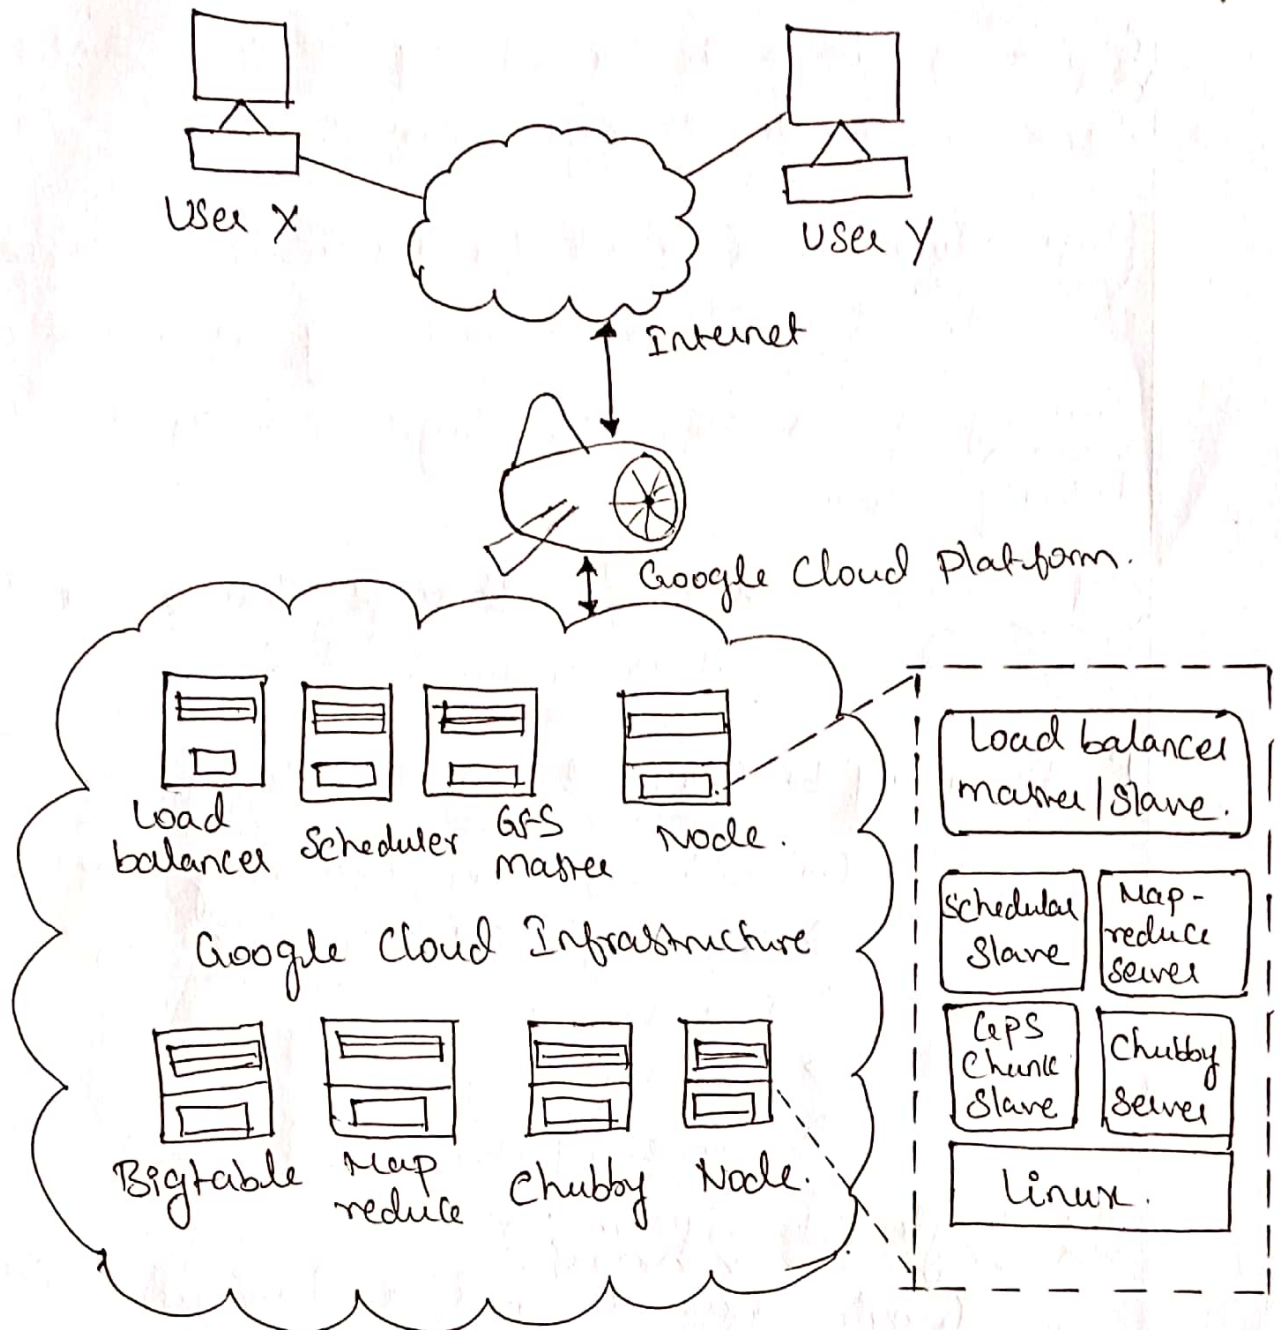 User X
User Y
Internet
Google Cloud Platform.
Load
balancer
Scheduler
GFS
Master
Node.
Google Cloud Infrastructure
Bigtable
Map
reduce
Chubby
Node.
Load balancer
master/Slave.
Schedular
Slave
Map-
reduce
server
GPS
Chunk
Slave
Chubby
Server
Linux.